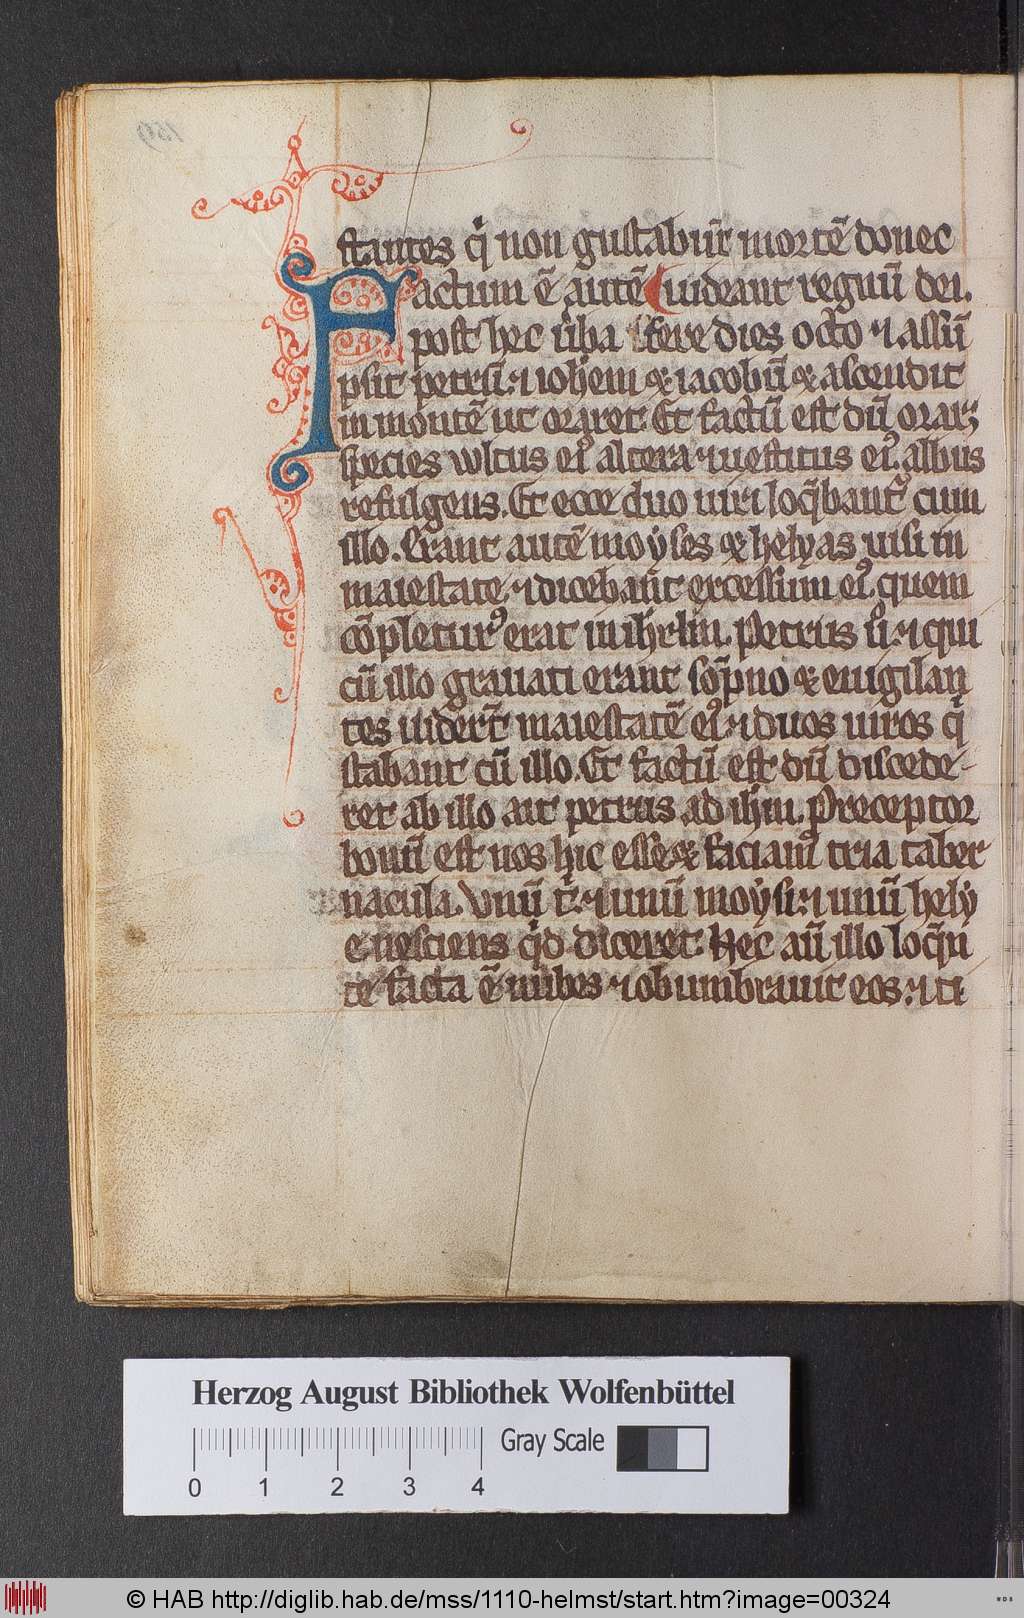 stantes q̇ non gustabūt mortē donec
Factum ē autē uideant regnū dei.
post hec ũba fere dies octo ⁊ assū
psit petrū. ⁊ ioħem ⁊ iacobū ⁊ ascendit
in montē ut oraret. Et factū est dū oraꝫ
species wltus eiꝰ altera ⁊ uestitus eiꝰ albus
refulgens. Et ecce duo uiri loq̄bantᷣ cum
illo. Erant autē moyses ⁊ helyas uisi in
maiestate. ⁊ dicebānt excessum eiꝰ quem
cōpleturꝰ erat in ihrl̄m. Petrus ů ⁊ qui
cū illo grauati erant sōpno ⁊ euigilan
tes uiderūt maiestatē eiꝰ ⁊ duos uiros q̇
stabant cū illo. Et factū est dū discede-
ret ab illo ait petrus ad ihm̄. Preceptor
bonū est nos hic esse ⁊ faciamꝰ tria taber
nacula. Vnū t̄. ⁊ unū moysi. ⁊ unū hely
e nesciens q̇d diceret. Hec aū illo loq̄n
te facta ē nubes ⁊ obumbrauit eos. ⁊ ti
Herzog August Bibliothek Wolfenbüttel
Gray Scale
0 1 2 3 4
© HAB http://diglib.hab.de/mss/1110-helmst/start.htm?image=00324